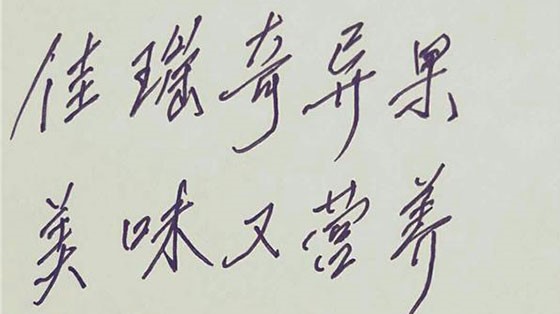 佳瑶奇异果
美味又营养